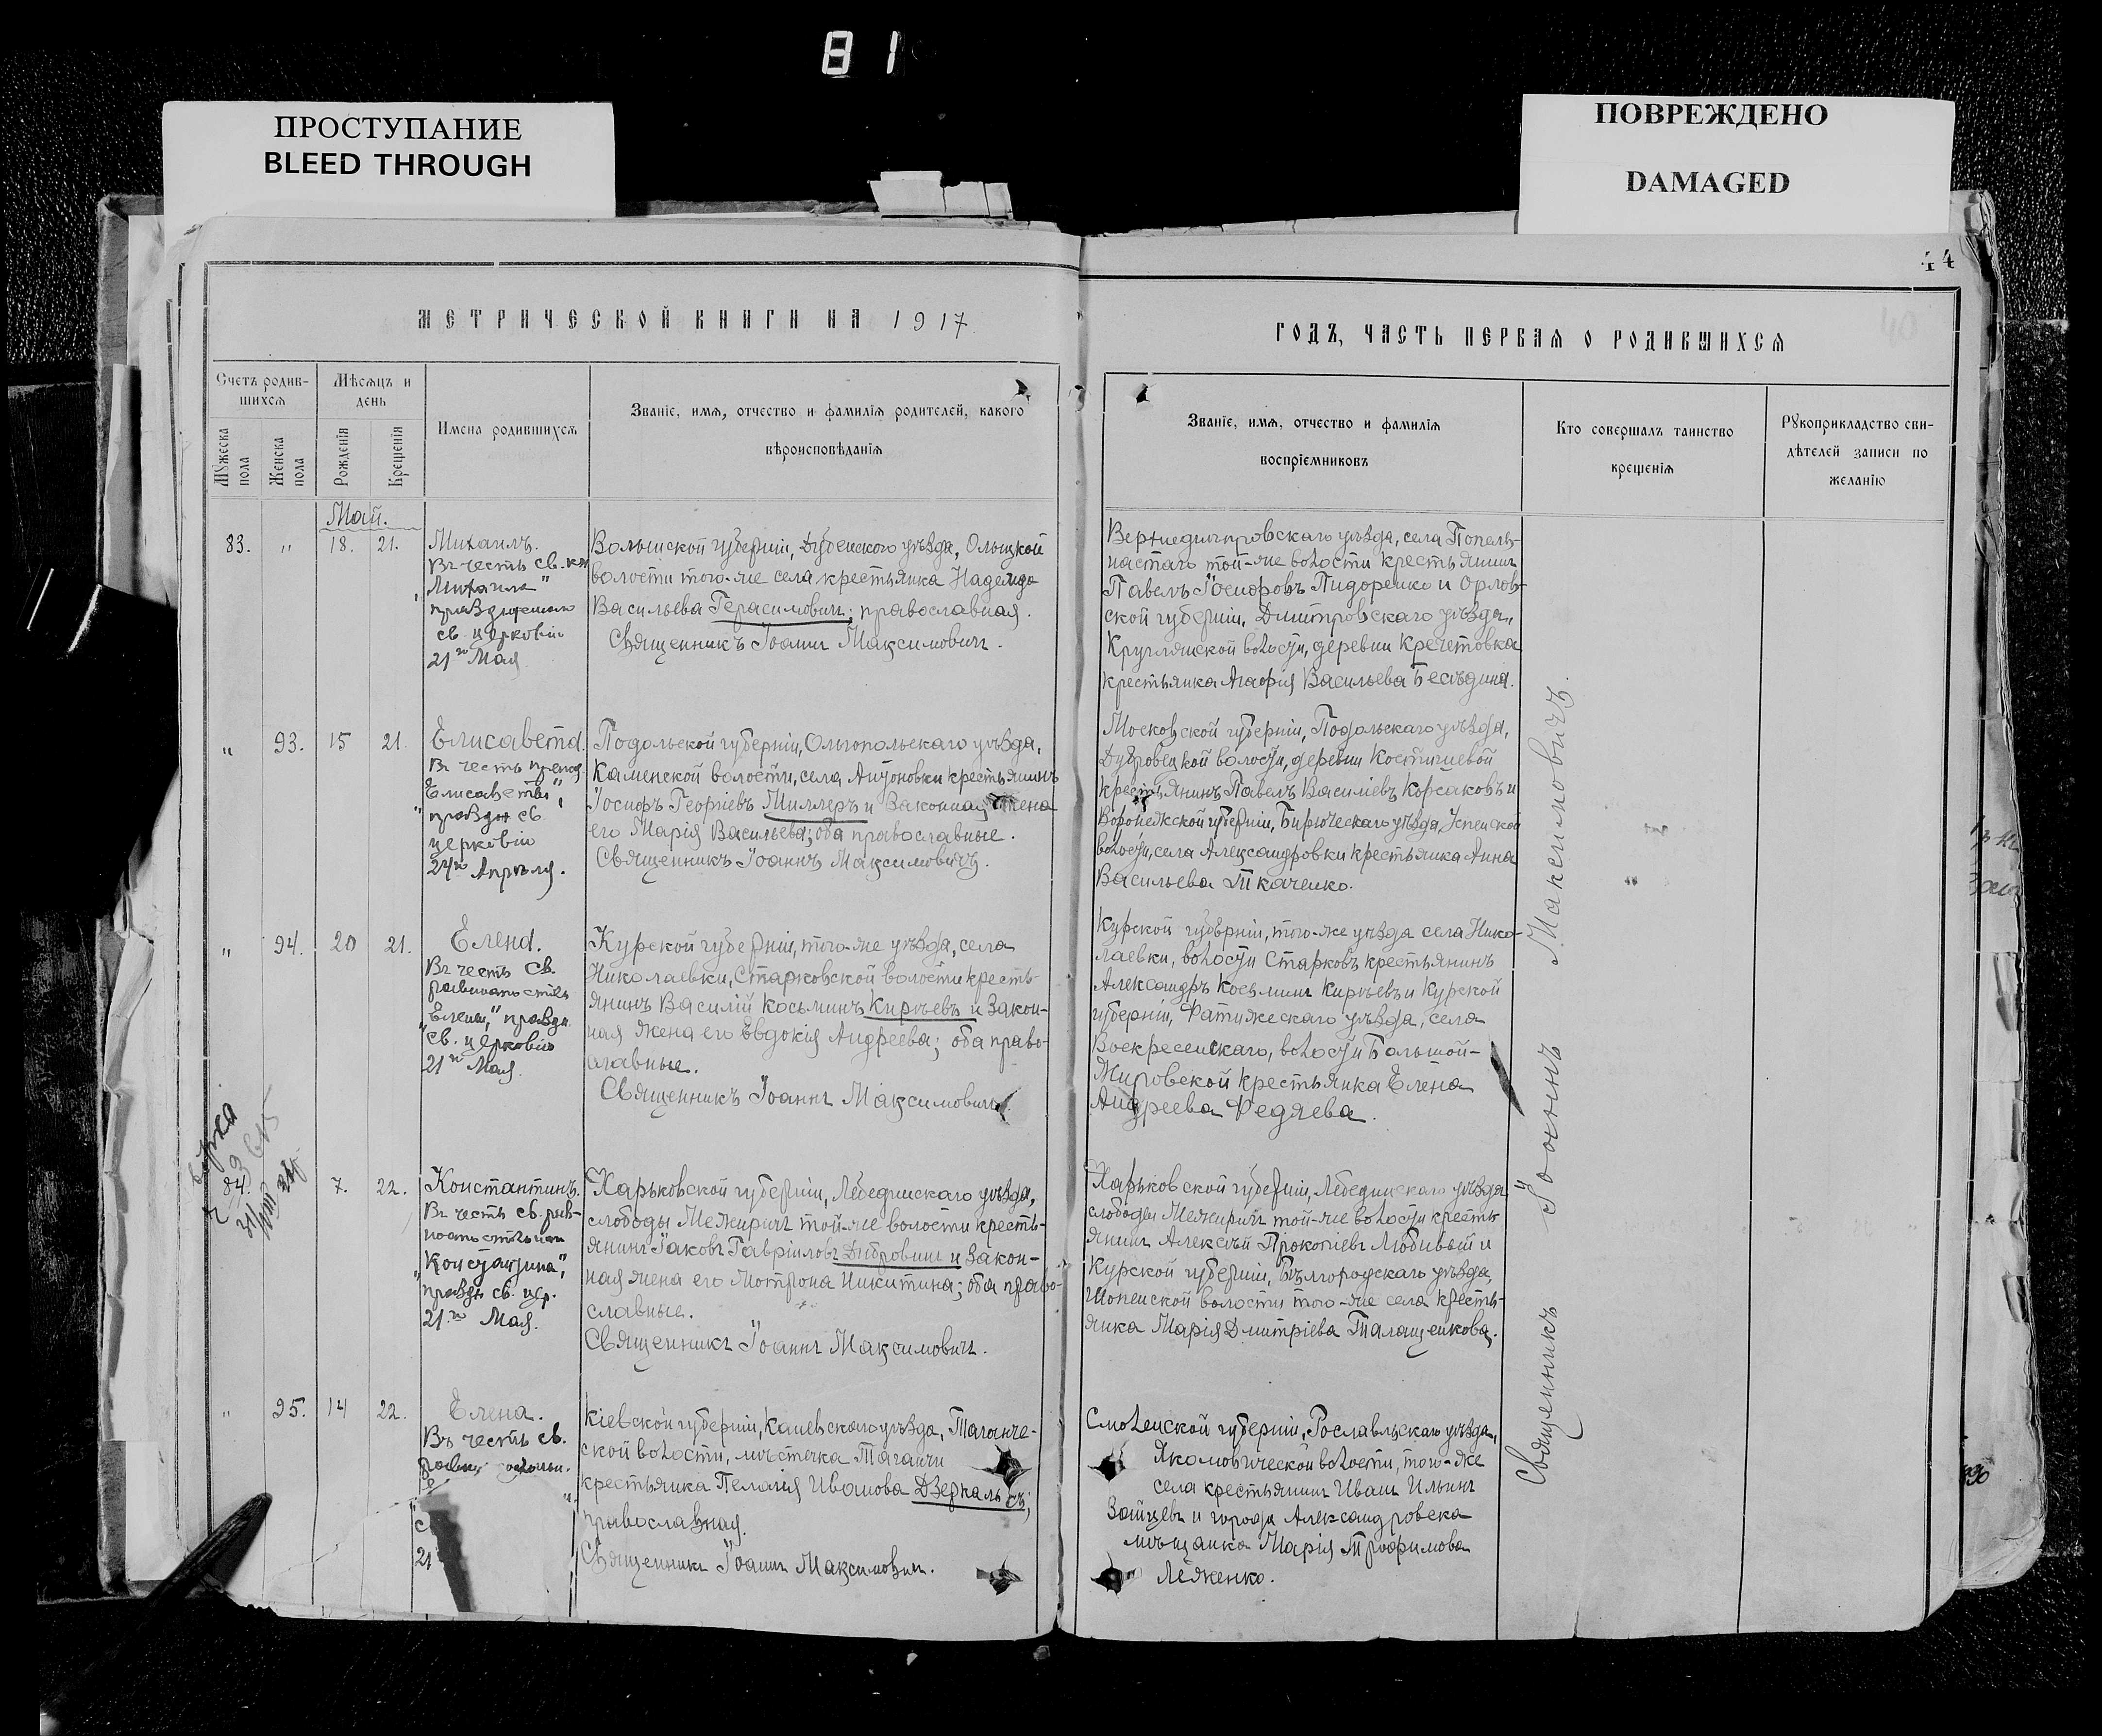 81
ПРОСТУПАНИЕ
BLEED THROUGH
ПОВРЕЖДЕНО
DAMAGED
44
40
МЕТРИЧЕСКОЙ КНИГИ НА 1917
ГОДЪ, ЧАСТЬ ПЕРВАЯ О РОДИВШИХСЯ
Счетъ родив-
шихся
Мѣсяцъ и
день
Мужеска
пола
Женска
пола
Рожденія
Крещенія
Имена родившихся
Званіе, имя, отчество и фамилія родителей, какого
вѣроисповѣданія
Званіе, имя, отчество и фамилія
воспріемниковъ
Кто совершалъ таинство
крещенія
Рукоприкладство сви-
дѣтелей записи по
желанію
Май.
83. " 18. 21.
Михаилъ.
Въ честь св. кн.
"Михаила"
празднуемаго
св. церковію
21го Мая
Волынской губерніи, Дубенскаго уѣзда, Олыцкой
волости того-же села крестьянка Надежда
Васильева Герасимовичъ; православная.
Священникъ Іоаннъ Максимовичъ.
Верхнеднѣпровскаго уѣзда, села Попель-
настаго той-же волости крестьянинъ
Павелъ Іосифовъ Пидоренко и Орлов-
ской губерніи, Дмитровскаго уѣзда,
Круглянской волости, деревни Кречетовка
крестьянка Агафія Васильева Бесѣдина.
" 93. 15 21.
Елисавета.
Въ честь препод.
"Елисаветы",
праздн св.
церковію
24го Апрѣля.
Подольской губерніи, Ольгопольскаго уѣзда,
Каменской волости, села Антоновки крестьянинъ
Іосифъ Георгіевъ Миллеръ и законная жена
его Марія Васильева; оба православные.
Священникъ Іоаннъ Максимовичъ.
Московской губерніи, Подольскаго уѣзда,
Дубровецкой волости, деревни
крестьянинъ Павелъ Василіевъ Корсаковъ и
Воронежской губерніи, Бирюческаго уѣзда, Успенской
волости, села Александровки крестьянка Анна
Васильева Ткаченко.
" 94. 20 21.
Елена.
Въ честь св.
равноапостол.
"Елены," праздн
св. церковію
21го Мая.
Курской губерніи, того-же уѣзда, села
Николаевки, Старковской волости кресть-
янинъ Василій Косьминъ Кирѣевъ и закон-
ная жена его Евдокія Андреева; оба право-
славные.
Священникъ Іоаннъ Максимовичъ.
Курской губерніи, того-же уѣзда села Нико-
лаевки, волости Старковъ крестьянинъ
Александръ Косьминъ Кирѣевъ и Курской
губерніи, Фатижескаго уѣзда, села
Воскресенскаго, волости Большой-
крестьянка Елена
Андреева Федяева.
84. 7. 22.
Константинъ.
Въ честь св. рав-
"Константина",
праздн св. цер.
21го Мая.
Харьковской губерніи, Лебединскаго уѣзда,
слободы Межиричъ той-же волости кресть-
янинъ Іаковъ Гавріиловъ Дубровинъ и закон-
ная жена его Мотрона Никитина; оба право-
славные.
Священникъ Іоаннъ Максимовичъ.
Харьковской губерніи, Лебединскаго уѣзда,
слободы Межиричъ той-же волости кресть-
янинъ Алексѣй Прокопіевъ Любивый и
Курской губерніи, Бѣлгородскаго уѣзда,
Шопенской волости того-же села кресть-
янка Марія Дмитріева Талащенкова.
" 95. 14 22.
Елена.
Въ честь св.
21
Кіевской губерніи, Каневскаго уѣзда, Таганче-
ской волости, мѣстечка Таганчи
крестьянка Пелагія Иванова Дзеркаль
православная.
Священникъ Іоаннъ Максимовичъ.
Смоленской губерніи, Рославльскаго уѣзда,
волости, того-же
села крестьянинъ Иванъ Ильинъ
Зайцевъ и города Александровска
мѣщанка Марія Трофимова
Леженко.
Священникъ Іоаннъ Максимовичъ.